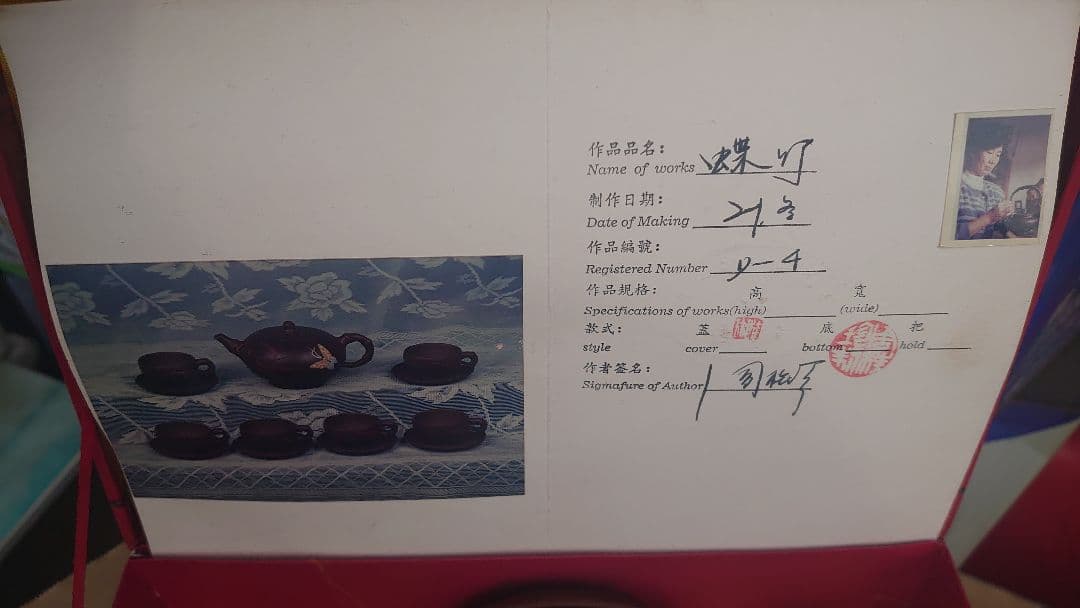 作品品名：
Name of works 蝶
制作日期：
Date of Making
作品編號：
Registered Number 4
作品規格： 高 寬
Specifications of works(high) (wide)
款式： 蓋 底 把
style cover bottom hold
作者签名：
Sigmafure of Author